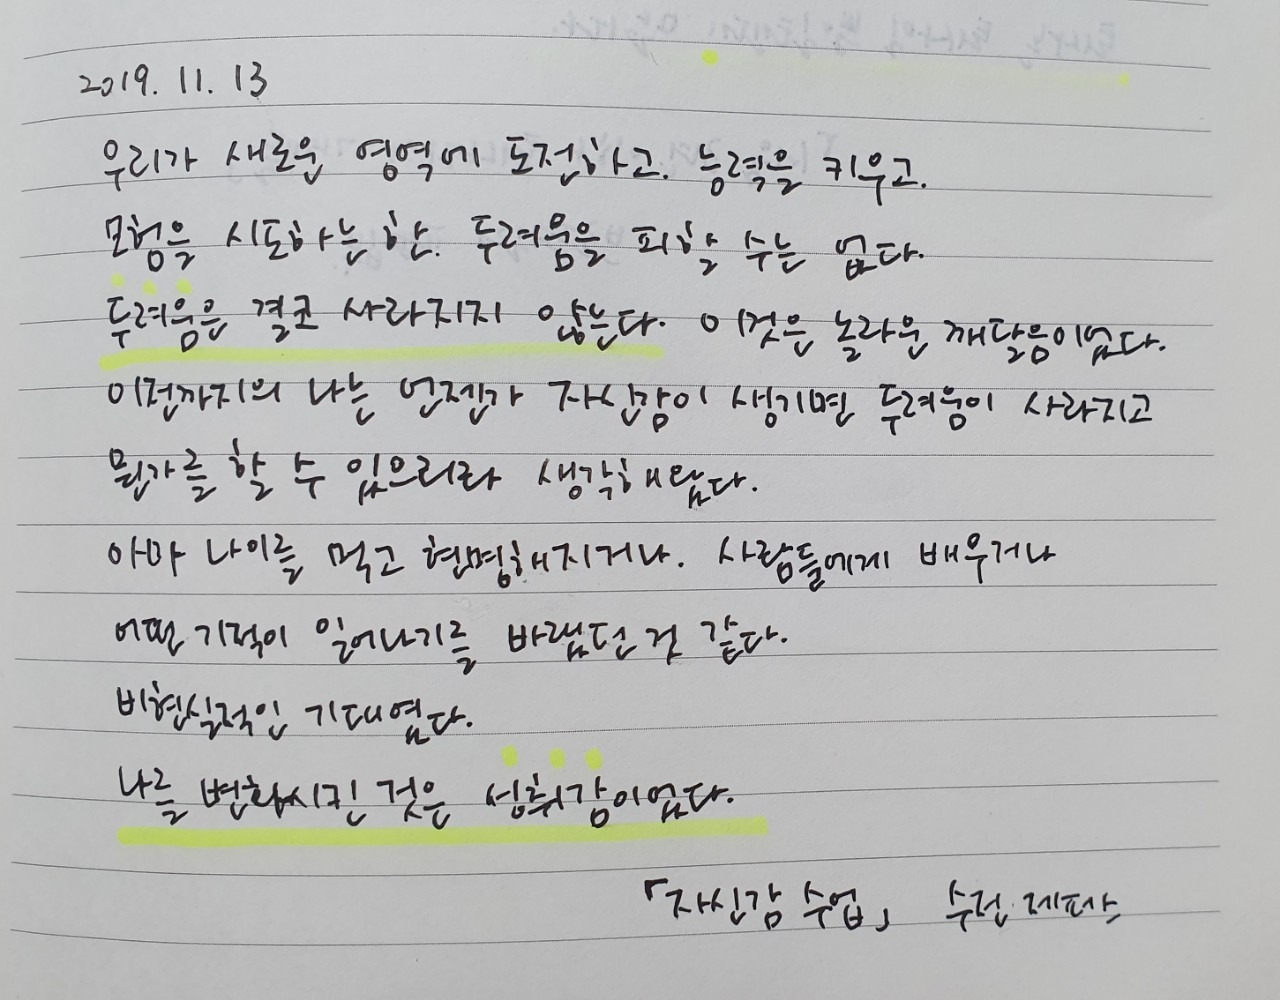 2019. 11. 13
우리가 새로운 영역에 도전하고. 능력을 키우고.
모험을 시도하는 한. 두려움을 피할 수는 없다.
두려움은 결코 사라지지 않는다. 이것은 놀라운 깨달음이었다.
이전까지의 나는 언젠가 자신감이 생기면 두려움이 사라지고
뭔가를 할 수 있으리라 생각해왔다.
아마 나이를 먹고 현명해지거나. 사람들에게 배우거나
어떤 기적이 일어나기를 바랬던 것 같다.
비현실적인 기대였다.
나를 변화시킨 것은 성취감이었다.
「자신감 수업」 수전 제퍼스